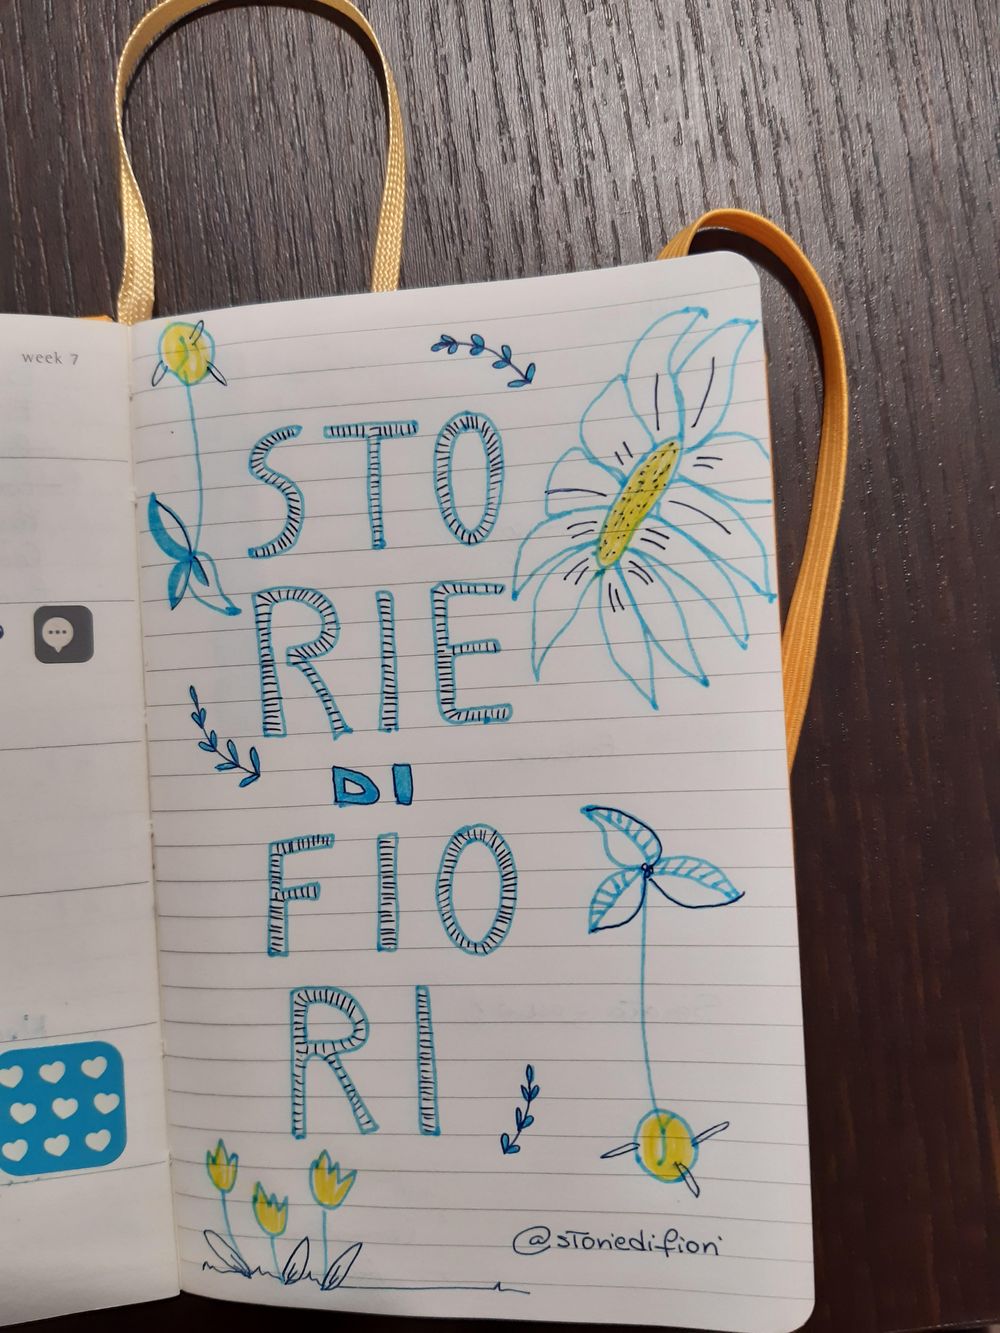 week 7
STO
RIE
DI
FIO
RI
@storiedifiori